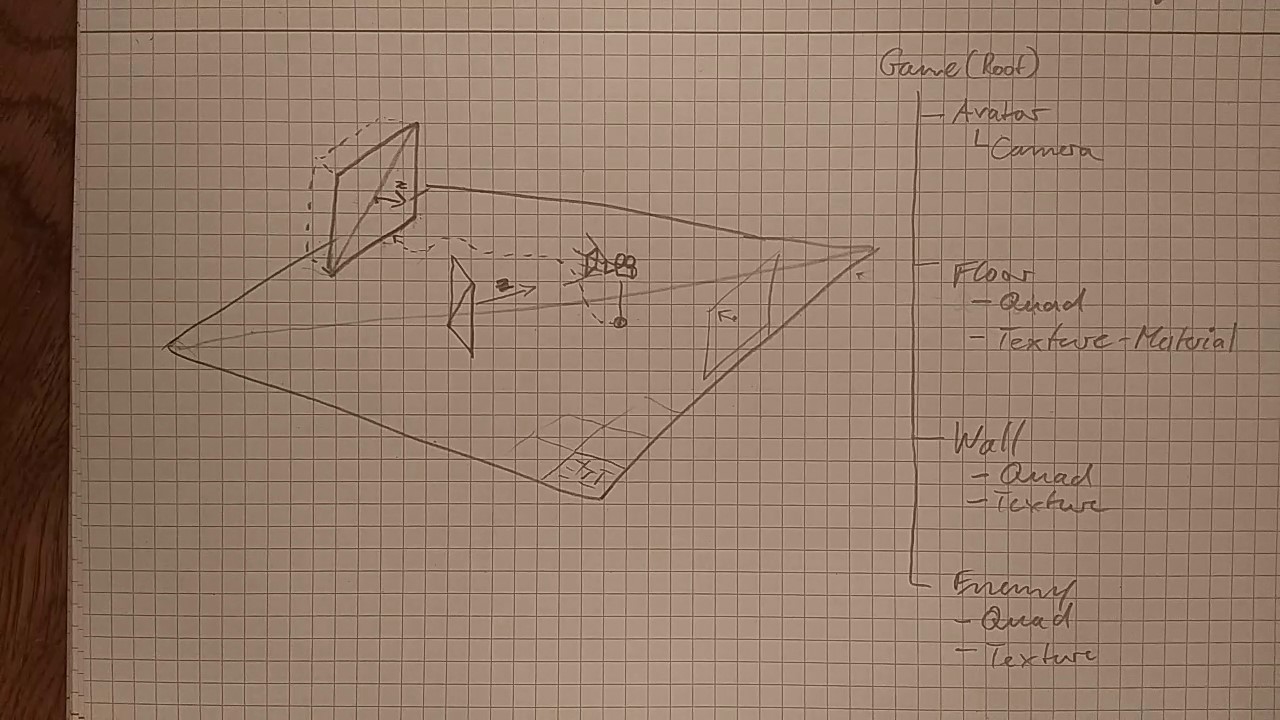 Game (Root)
Avatar
Camera
z
z
Floor
- Quad
- Texture - Material
Wall
- Quad
- Texture
Enemy
- Quad
- Texture